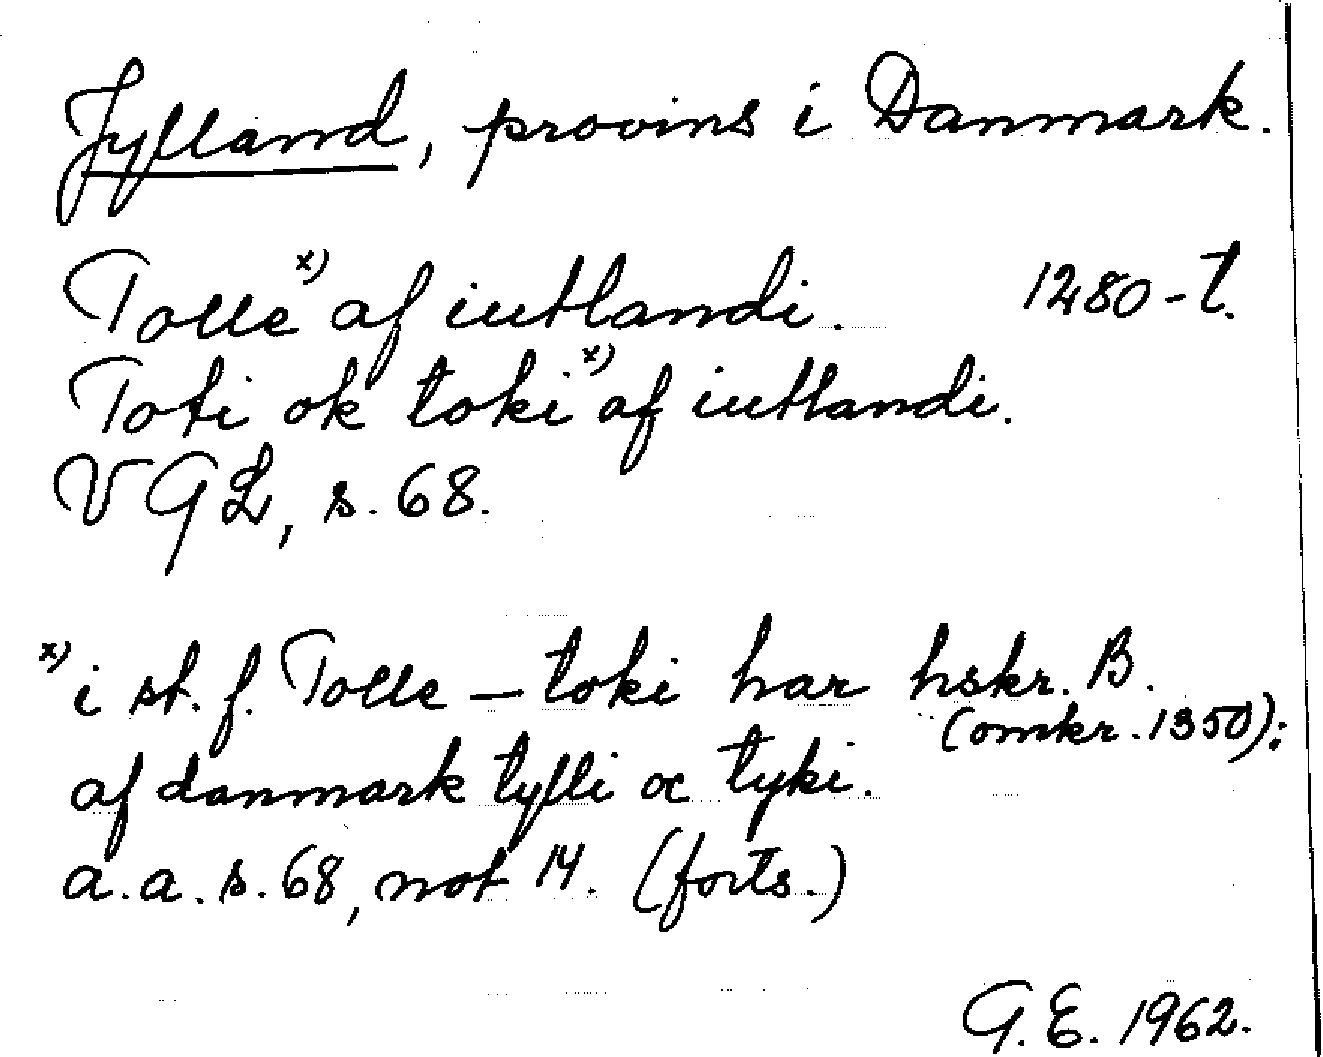 Jylland, provins i Danmark.
Tolle x) af iutlandi. 1280-t.
Toti ok toki x) af iutlandi.
VGL, s. 68.
x) i st. f. Tolle – toki har hskr. B.
(omkr. 1350):
af danmark tylli oc tyki.
a.a. s. 68, not 14. (forts.)
G.E. 1962.